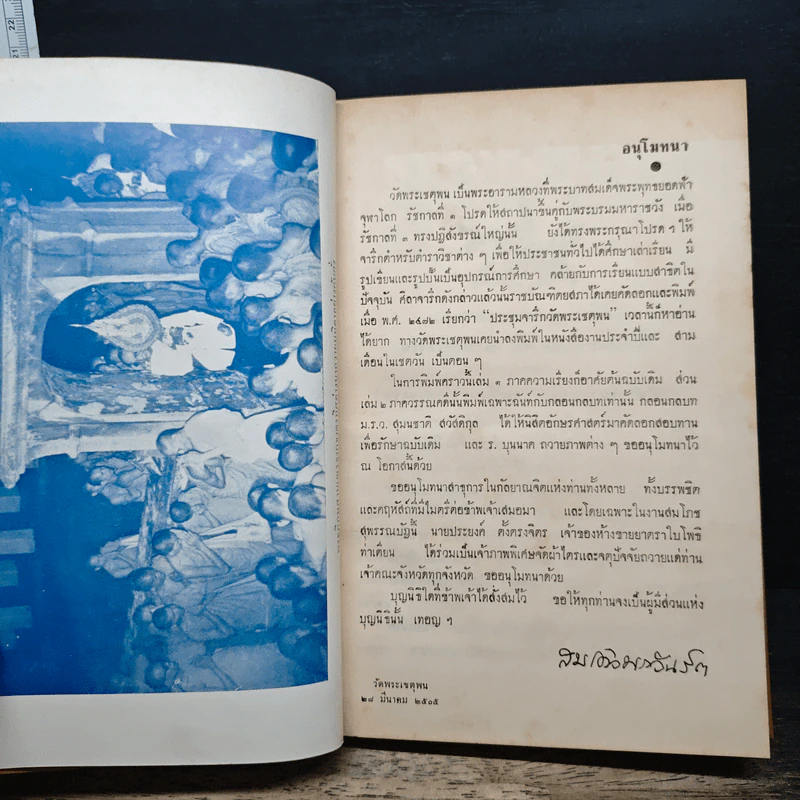 22
21
อนุโมทนา
วัดพระเชตุพน เป็นพระอารามหลวงที่พระบาทสมเด็จพระพุทธยอดฟ้า
จุฬาโลก รัชกาลที่ ๑ โปรดให้สถาปนาขึ้นคู่กับพระบรมมหาราชวัง เมื่อ
รัชกาลที่ ๓ ทรงปฏิสังขรณ์ใหญ่นั้น ยังได้ทรงพระกรุณาโปรด ๆ ให้
จารึกตำหรับตำราวิชาต่าง ๆ เพื่อให้ประชาชนทั่วไปได้ศึกษาเล่าเรียน มี
รูปเขียนและรูปปั้นเป็นอุปกรณ์การศึกษา คล้ายกับการเรียนแบบสาธิตใน
ปัจจุบัน ศิลาจารึกดังกล่าวแล้วนั้นราชบัณฑิตยสภาได้เคยคัดลอกและพิมพ์
เมื่อ พ.ศ. ๒๔๗๒ เรียกว่า “ประชุมจารึกวัดพระเชตุพน” เวลานี้ก็หาอ่าน
ได้ยาก ทางวัดพระเชตุพนเคยนำลงพิมพ์ในหนังสืองานประจำปีและ สาม
เดือนในเชตวัน เป็นตอน ๆ
ในการพิมพ์คราวนี้เล่ม ๑ ภาคความเรียงก็อาศัยต้นฉบับเดิม ส่วน
เล่ม ๒ ภาควรรณคดีนั้นพิมพ์เฉพาะฉันท์กับกลอนกลบทเท่านั้น กลอนกลบท
ม.ร.ว. สุมนชาติ สวัสดิกุล ได้ให้นิสิตอักษรศาสตร์มาคัดลอกสอบทาน
เพื่อรักษาฉบับเดิม และ ร. บุนนาค ถวายภาพต่าง ๆ ขออนุโมทนาไว้
ณ โอกาสนี้ด้วย
ขออนุโมทนาสาธุการในกัลยาณจิตแห่งท่านทั้งหลาย ทั้งบรรพชิต
และคฤหัสถ์ที่มีไมตรีต่อข้าพเจ้าเสมอมา และโดยเฉพาะในงานสมโภช
สุพรรณบัฏนี้ นายประยงค์ ตั้งตรงจิตร เจ้าของห้างขายยาตราใบโพธิ์
ท่าเตียน ได้ร่วมเป็นเจ้าภาพพิเศษจัดผ้าไตรและจตุปัจจัยถวายแด่ท่าน
เจ้าคณะจังหวัดทุกจังหวัด ขออนุโมทนาด้วย
บุญนิธิใดที่ข้าพเจ้าได้สั่งสมไว้ ขอให้ทุกท่านจงเป็นผู้มีส่วนแห่ง
บุญนิธินั้น เทอญ ฯ
วัดพระเชตุพน
๒๘ มีนาคม ๒๕๐๕